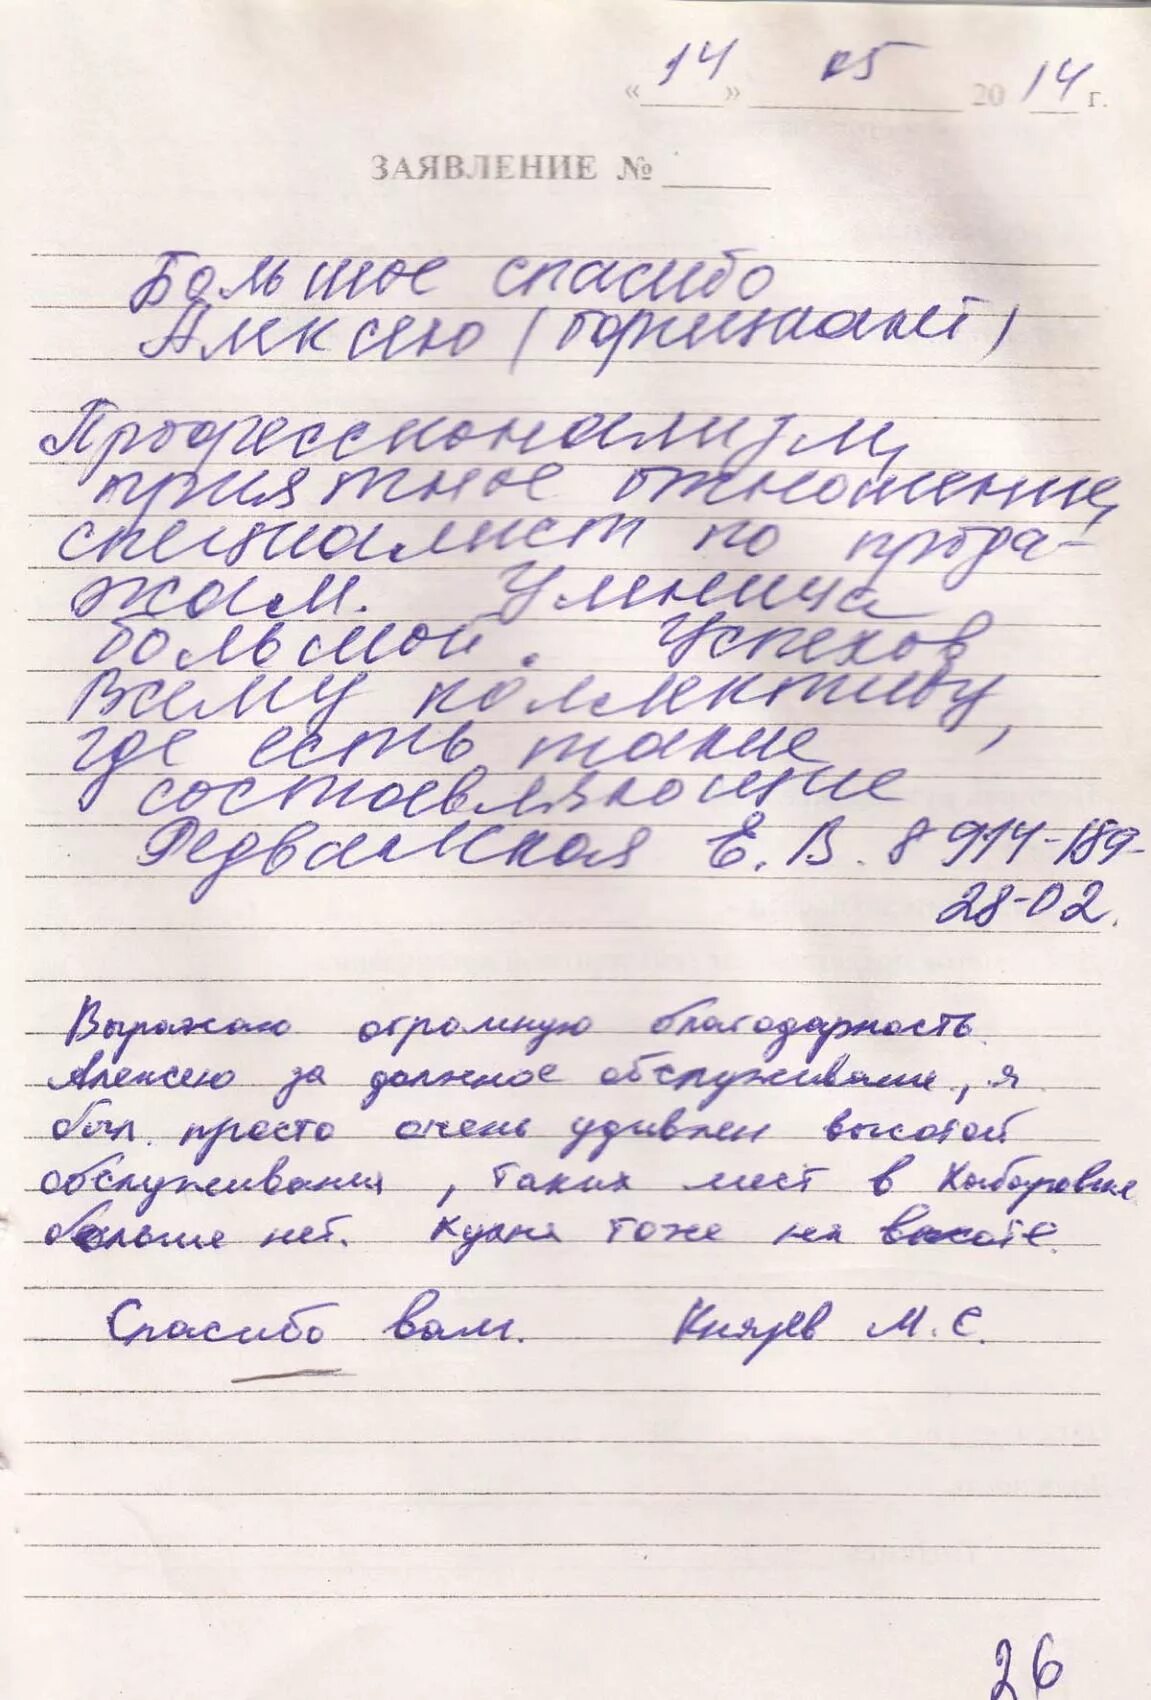 «14» 05 2014 г.
ЗАЯВЛЕНИЕ №
Большое спасибо
Алексею (официант)
Профессионализм,
приятное отношение,
специалист по прода-
жам. Умница
большой. Успехов
Всему коллективу,
где есть такие
составляющие
Е. В. 8 914-189-
28-02.
Выражаю огромную благодарность
Алексею за должное обслуживание, я
был просто очень удивлен высотой
обслуживания, таких мест в Хабаровске
больше нет. Кухня тоже на высоте.
Спасибо вам. Князев М.С.
26